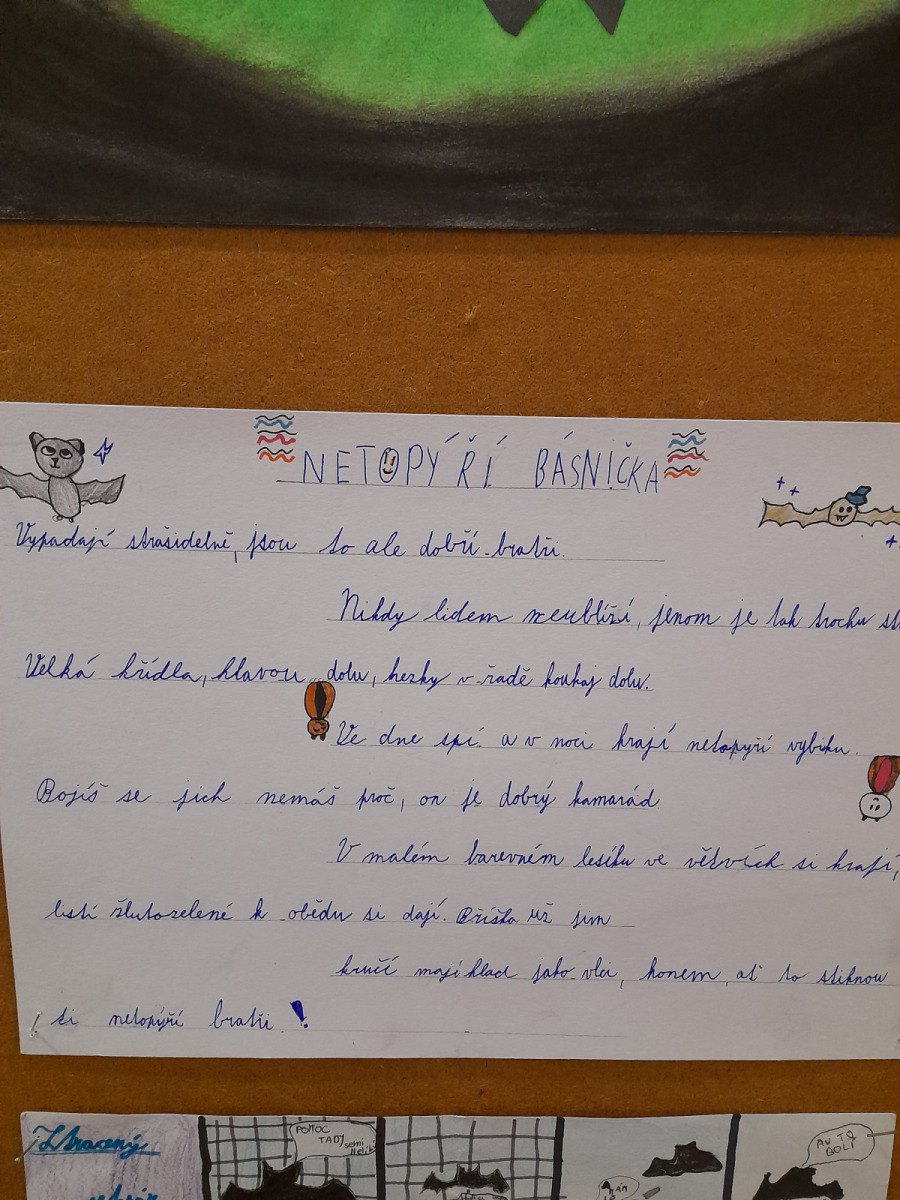 NETOPÝŘÍ BÁSNIČKA
Vypadají strašidelně, jsou to ale dobří bratři.
Nikdy lidem neublíží, jenom je tak trochu
Velká křídla, hlavou dolu, hezky v řadě koukaj dolu.
Ve dne spí a v noci hrají netopyří vybiku.
Bojíš se jich nemáš proč, on je dobrý kamarád
V malém barevném lesíku ve větvích si hrají,
listí žlutozelené k obědu si dají. Bříška už jim
kručí mají hlad jako vlci, honem, ať to stihnou
ti netopýří bratři!
Ztracený
POMOC
TADY
AU TO
BOLÍ